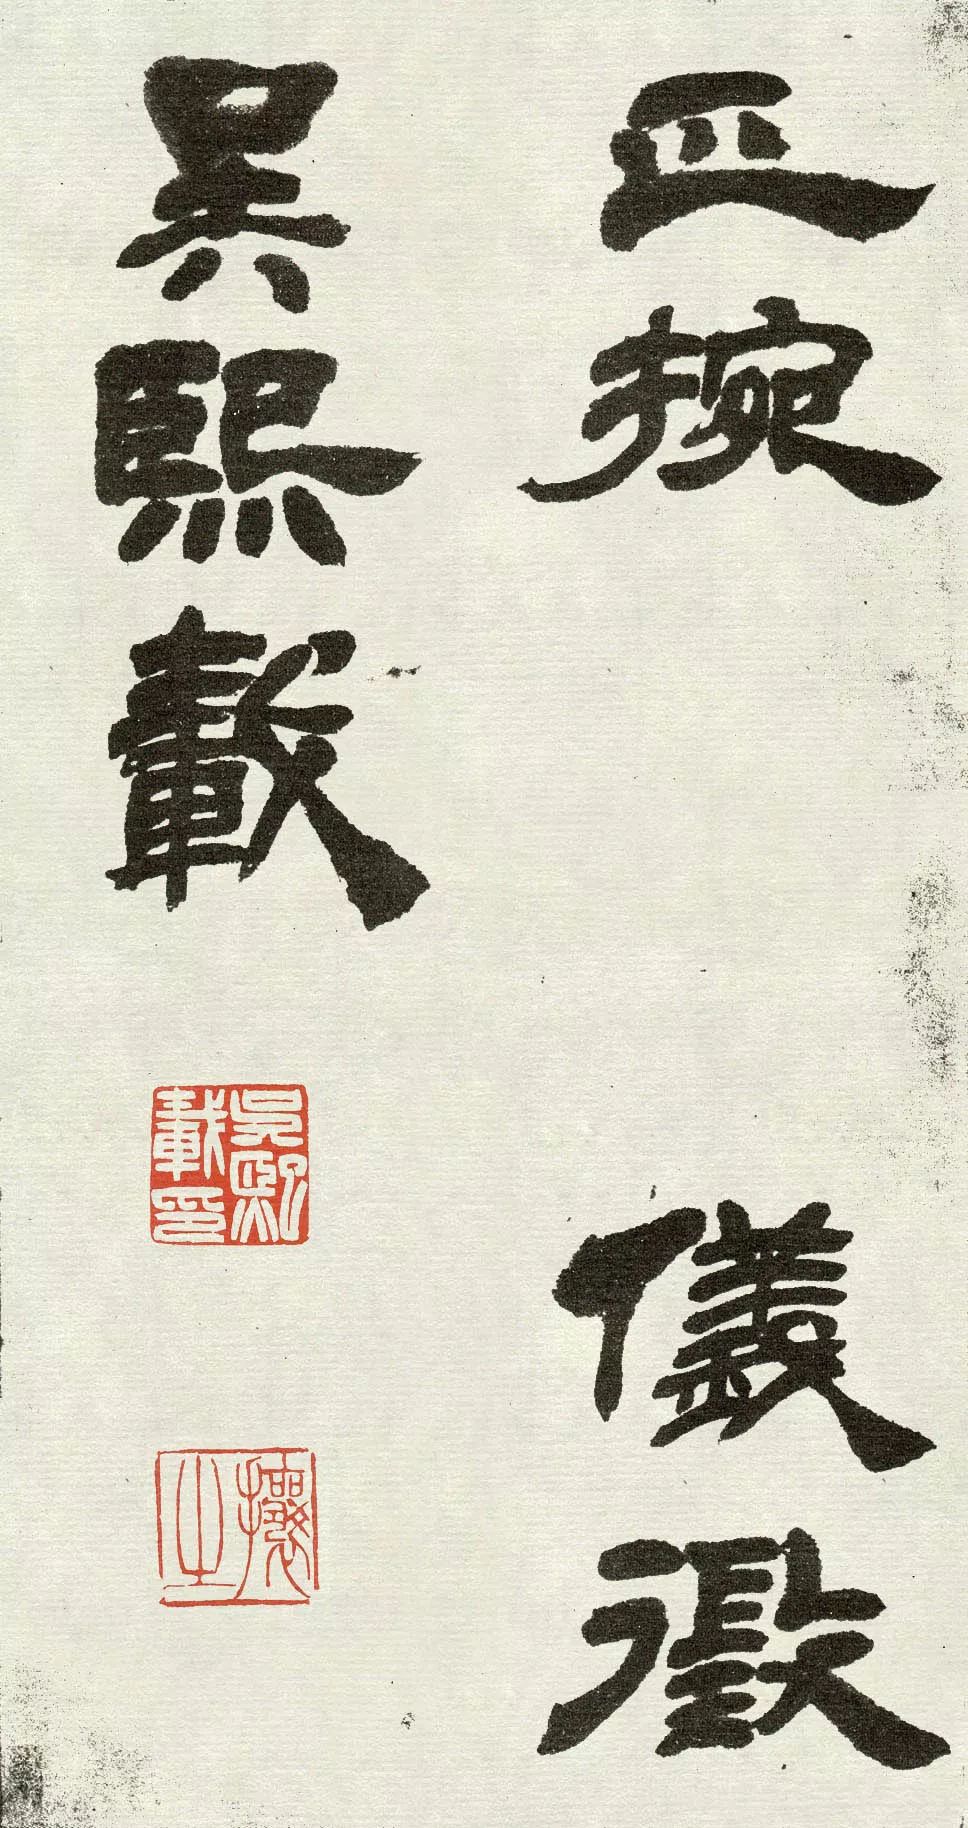 正捥　儀徵
吳熙載
吳熙載印
攘之